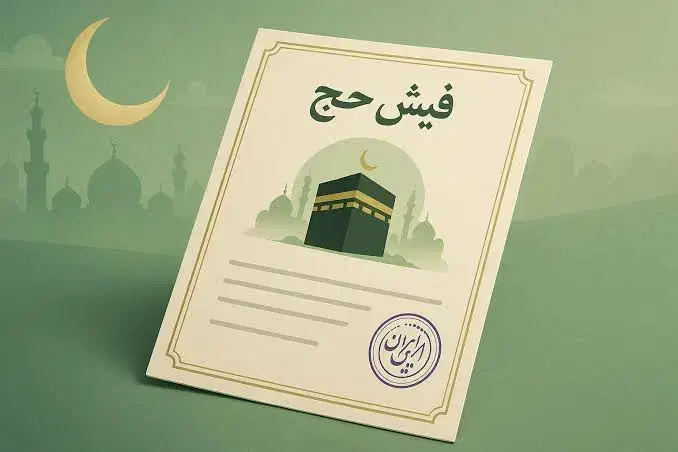 فیش حج
ایران